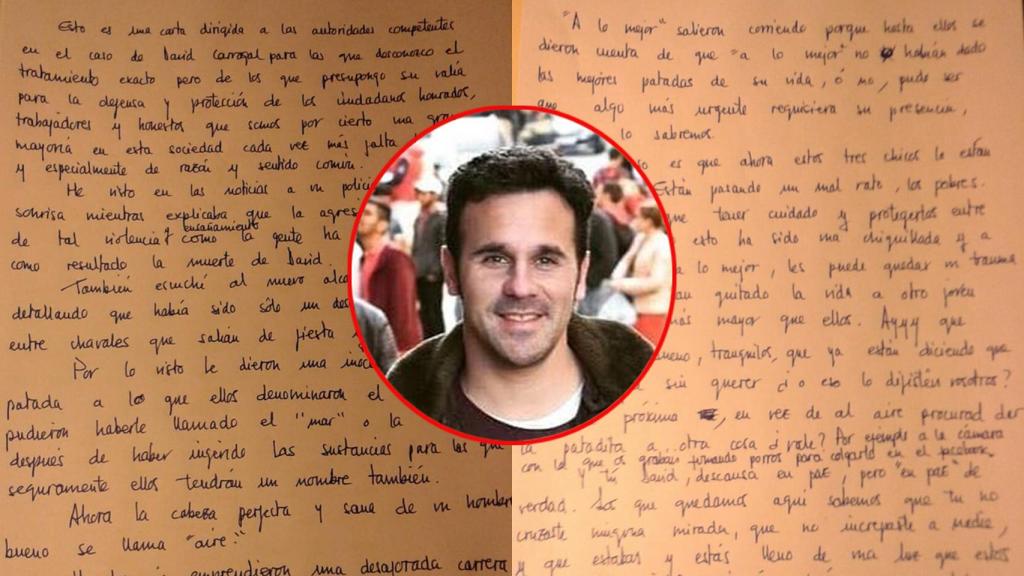 Esto es una carta dirigida a las autoridades competentes
en el caso de David Carragal para las que desconozco el
tratamiento exacto pero de los que presupongo su valía
para la defensa y protección de los ciudadanos honrados,
trabajadores y honestos que somos por cierto una gran
mayoría en esta sociedad cada vez más falta
y especialmente de razón y sentido común.
He visto en las noticias a un
sonrisa mientras explicaba que la
de tal violencia y ensañamiento como la gente ha
como resultado la muerte de David.
También escuché al nuevo
detallando que había sido sólo un
entre chavales que salían de fiesta
Por lo visto le dieron una
patada a lo que ellos denominaron el
pudieron haberle llamado el "mar" o la
después de haber ingerido las sustancias para las que
seguramente ellos tendrán un nombre también.
Ahora la cabeza perfecta y sana de un hombre
bueno se llama "aire".
emprendieron una desaforada carrera
"A lo mejor" salieron corriendo porque hasta ellos se
dieron cuenta de que "a lo mejor" no habían dado
las mejores patadas de su vida, ó no, pude ser
que algo más urgente requiriera su presencia,
lo sabremos.
es que ahora estos tres chicos lo están
Están pasando un mal rato, los pobres.
que tener cuidado y protegerlos entre
esto ha sido una chiquillada y a
a lo mejor, les puede quedar un trauma
quitado la vida a otro joven
más mayor que ellos. Ayyy que
tranquilos, que ya están diciendo que
sin querer ¿o eso lo dijisteis vosotros?
próxima, en vez de al aire procurad dar
la patadita a... otra cosa ¿vale? Por ejemplo a la cámara
con la que os grabáis fumando porros para colgarlo en el facebook.
y tú David, descansa en paz, pero "en paz" de
verdad. Los que quedamos aquí sabemos que tu no
cruzaste ninguna mirada, que no increpaste a nadie,
y que estabas y estás lleno de una luz que estos